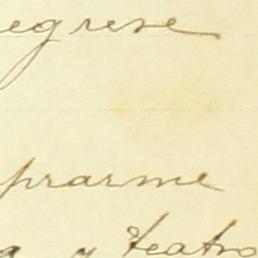 egrese
prarme
a y teatro